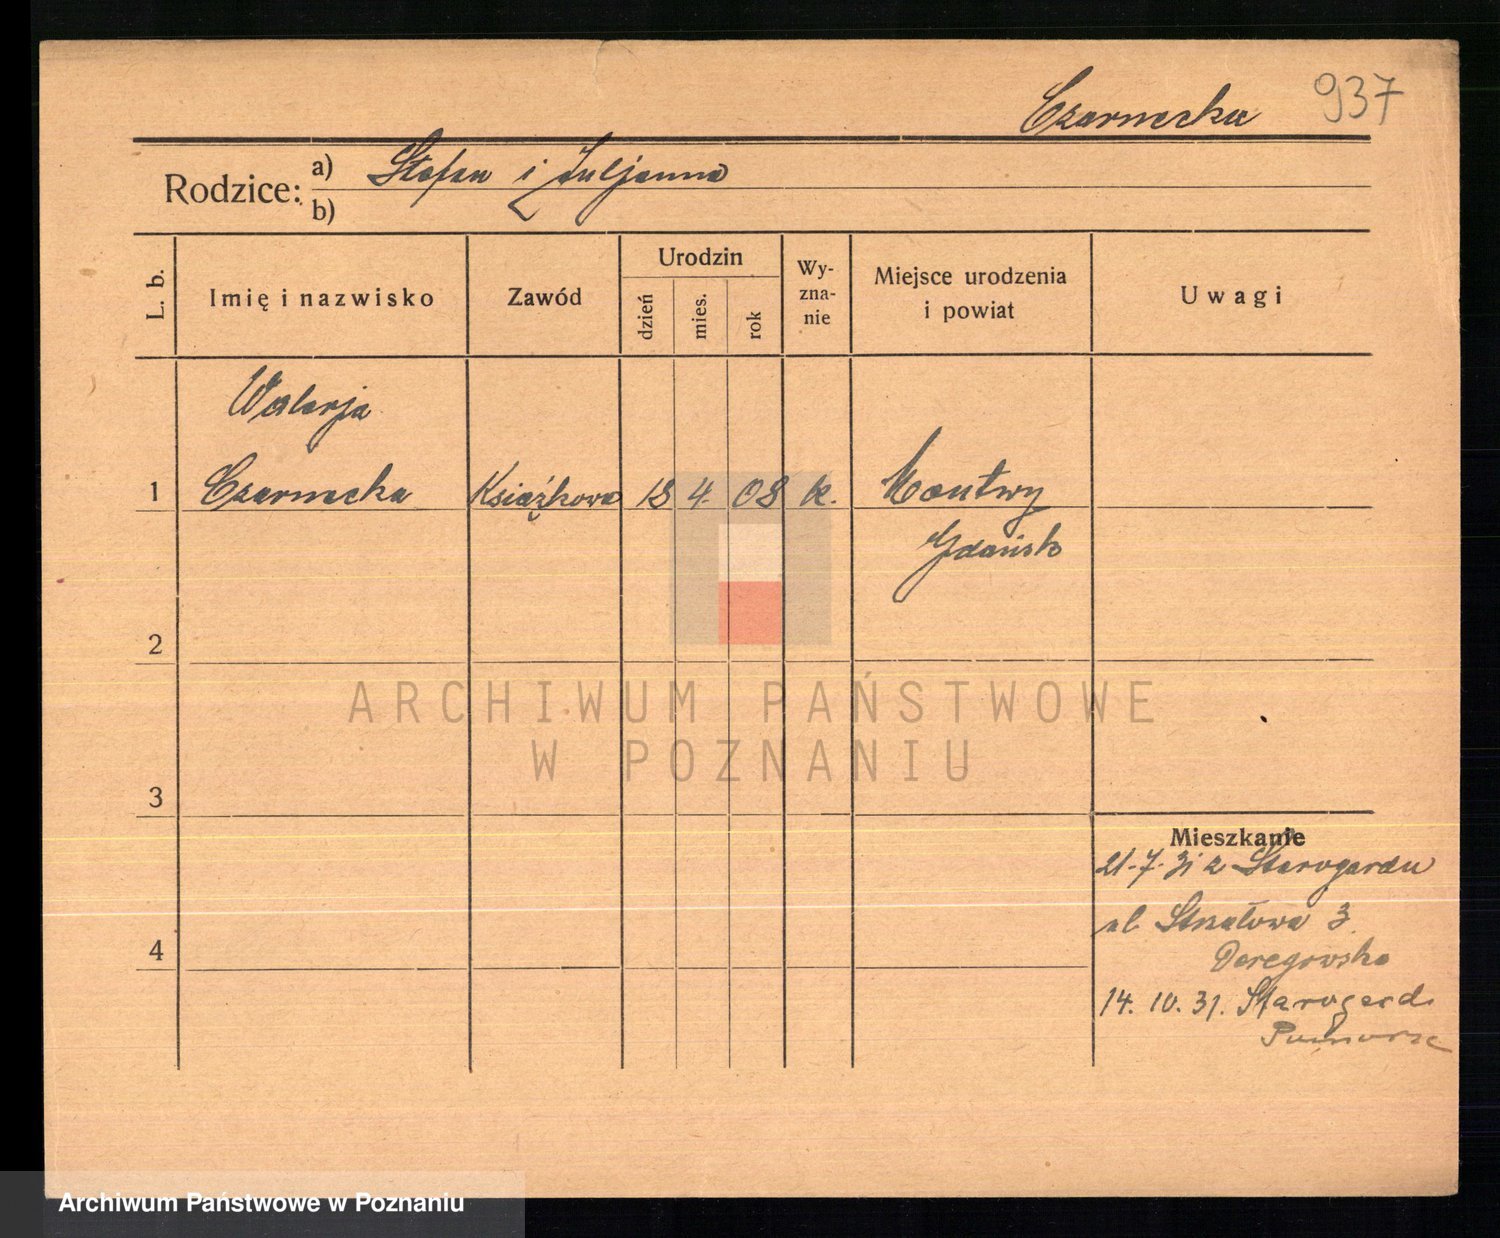 Czarnecka 937
Rodzice: a) Stefan i Juljanna
b)
L. b. Imię i nazwisko Zawód Urodzin dzień mies. rok Wyznanie Miejsce urodzenia i powiat Uwagi
Walerja
1 Czarnecka Książkowa 18 4. 08 k. Montwy
Gdańsk
2
ARCHIWUM PAŃSTWOWE
W POZNANIU
3
Mieszkanie
21.7.31 z Starogardu
ul. 3
4
14. 10. 31. Starogard
Pomorze
Archiwum Państwowe w Poznaniu